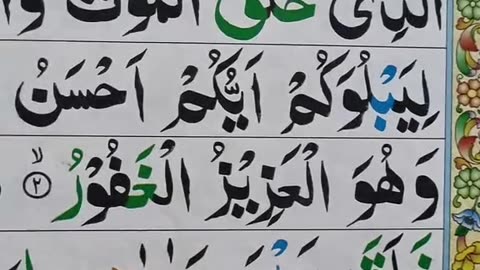 الَّذِیْ خَلَقَ الْمَوْتَ وَا
لِیَبْلُوَكُمْ اَیُّكُمْ اَحْسَنُ
وَهُوَ الْعَزِیْزُ الْغَفُوْرُ ۙ﴿۲﴾